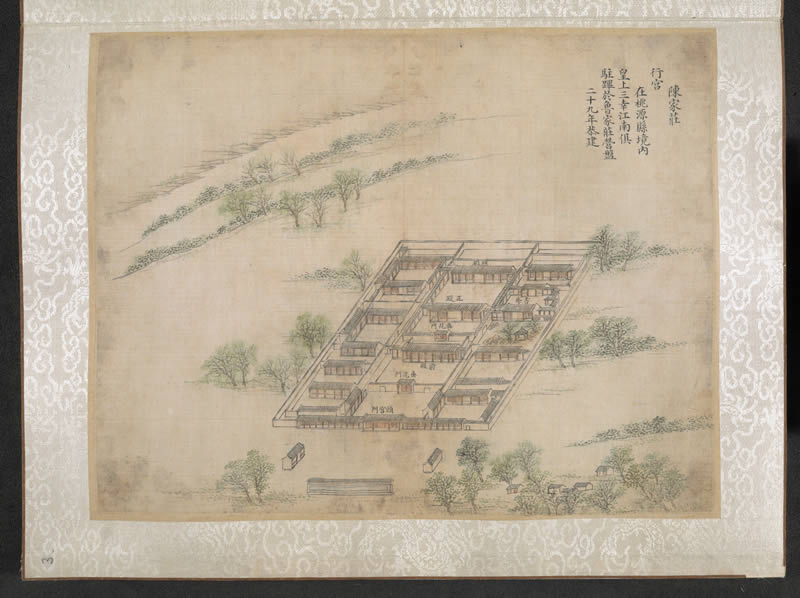 陳家莊
行宮
在桃源縣境內
皇上三幸江南俱
駐蹕於魯家莊營盤
二十九年恭建
照房
正殿
垂花門
前殿
垂花門
頭宮門
3